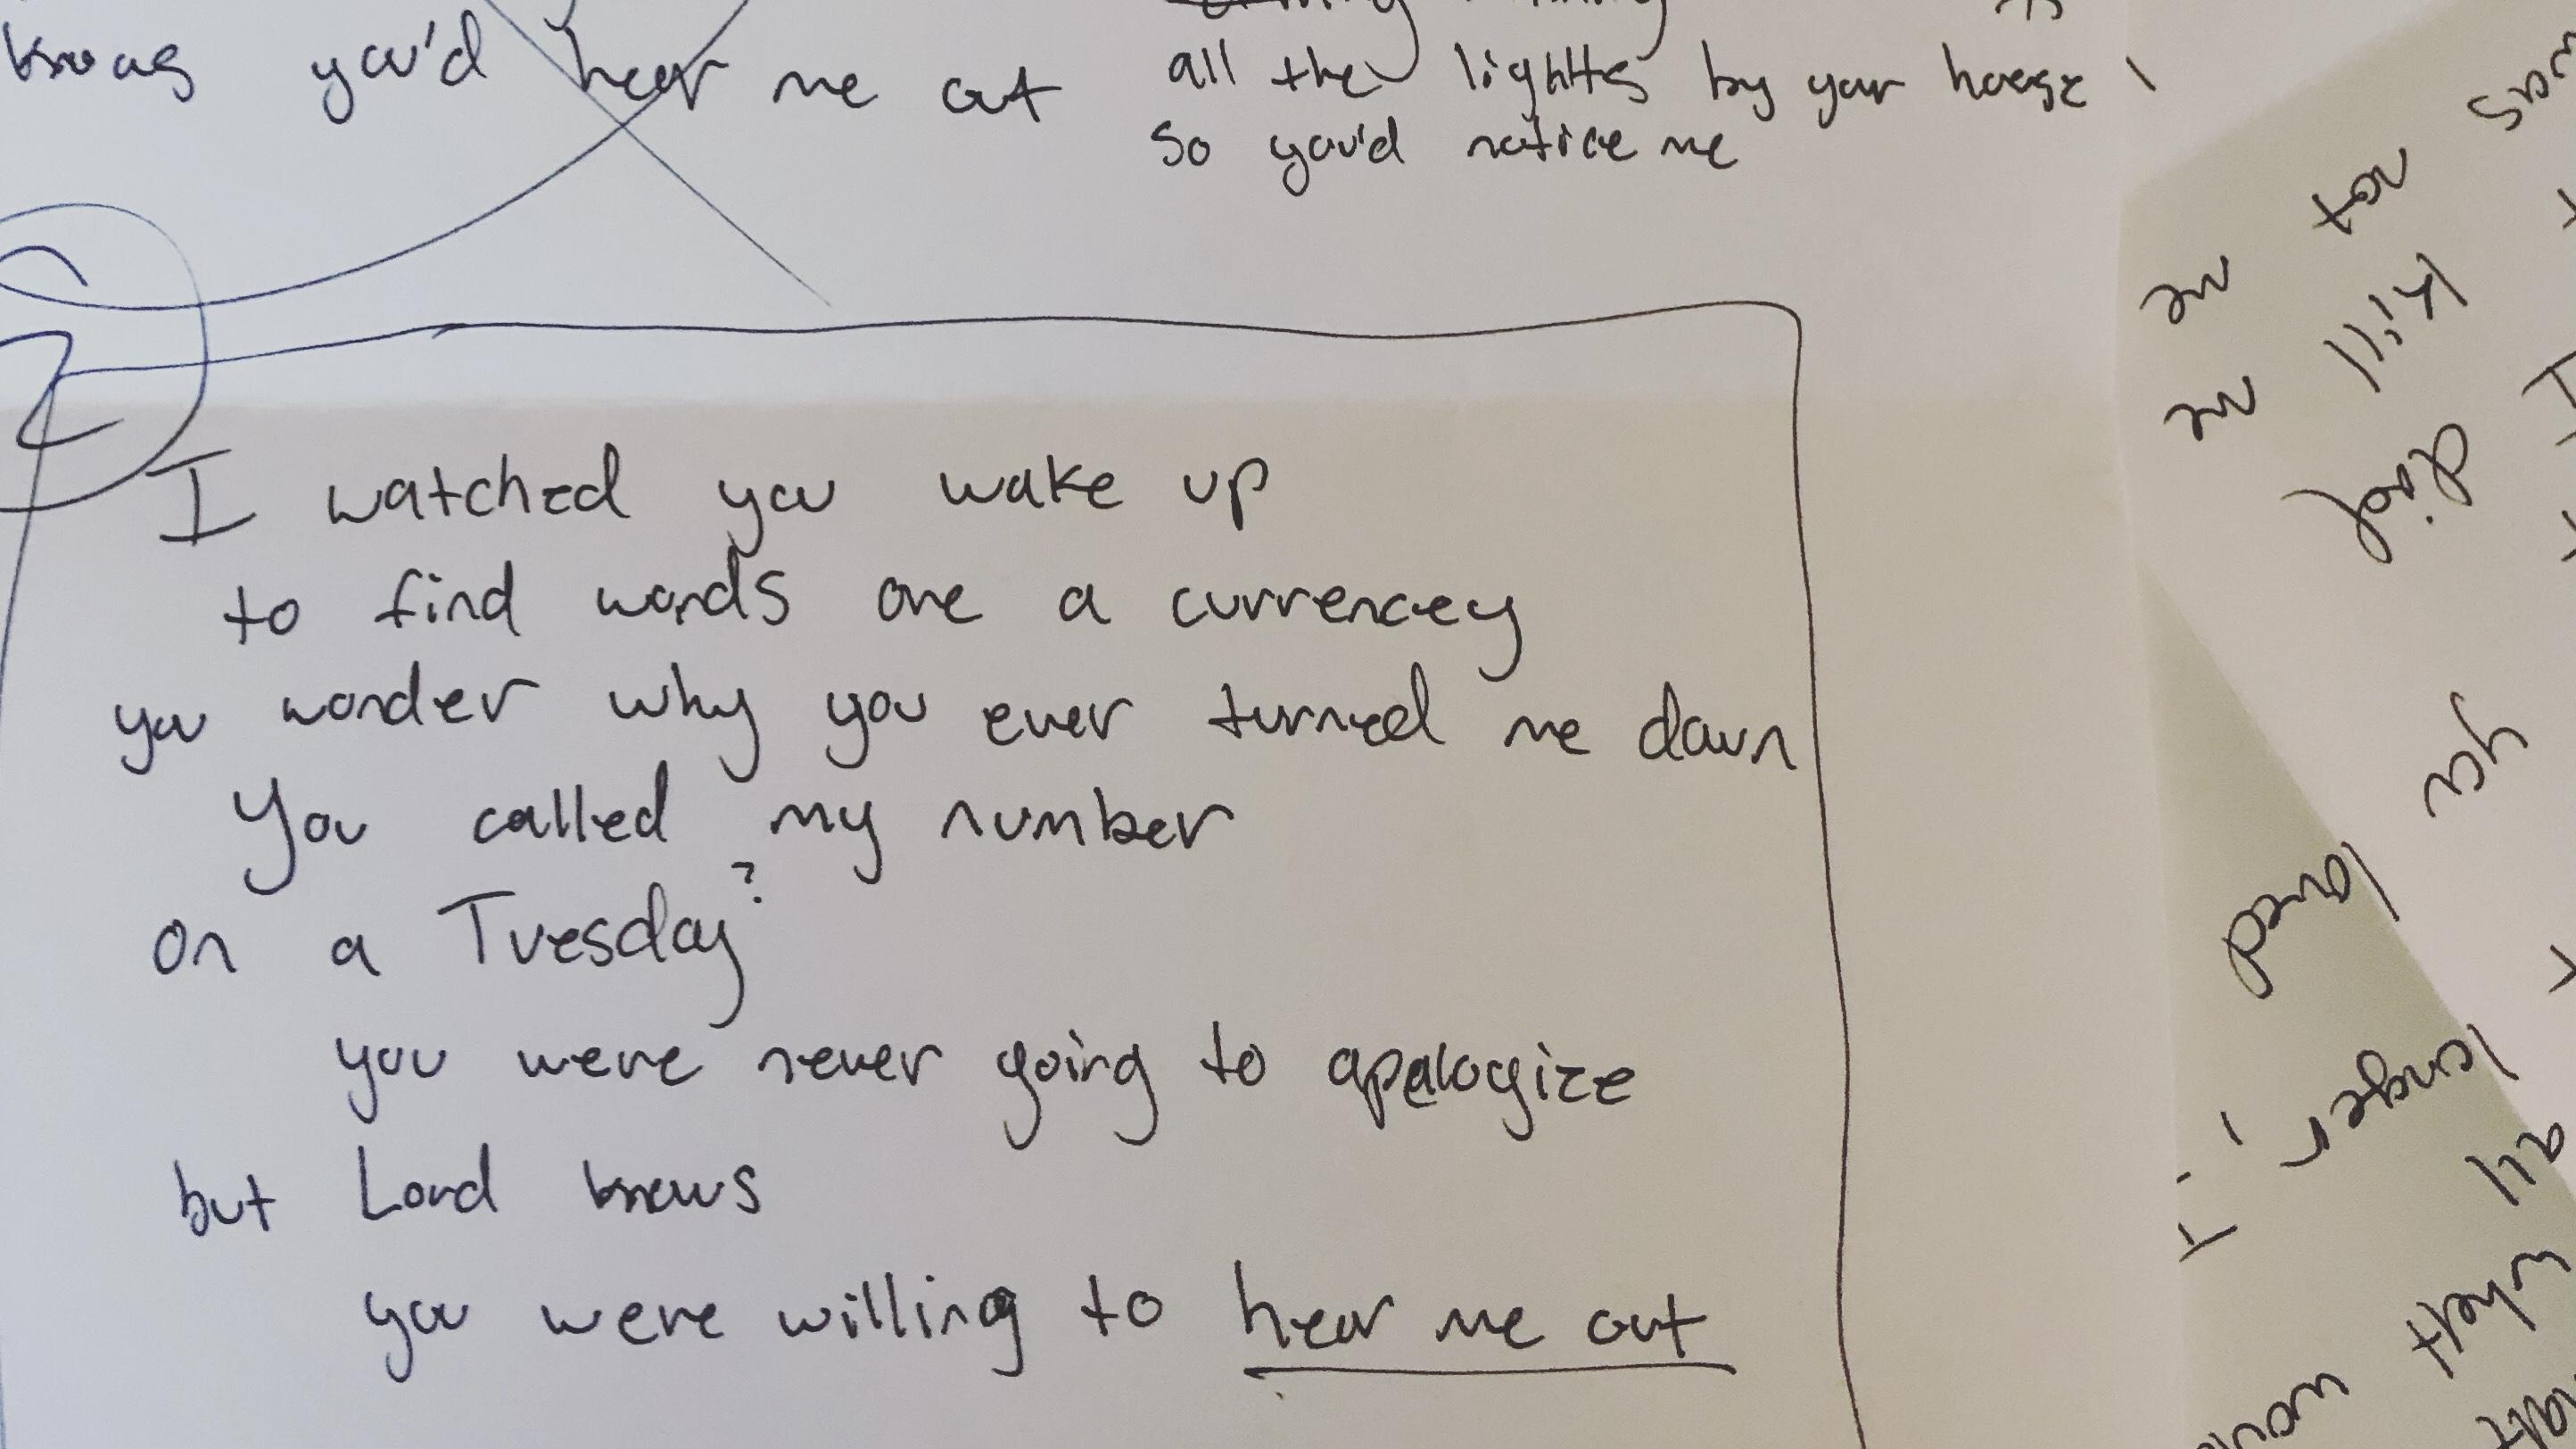 knows you'd hear me out
all the lights by your house
so you'd notice me
2
I watched you wake up
to find words are a currencey
you wonder why you ever turned me down
You called my number
on a Tuesday?
you were never going to apalogize
but Lord knows
you were willing to hear me out
me not
me kill
died
loved you
I longer
all
what